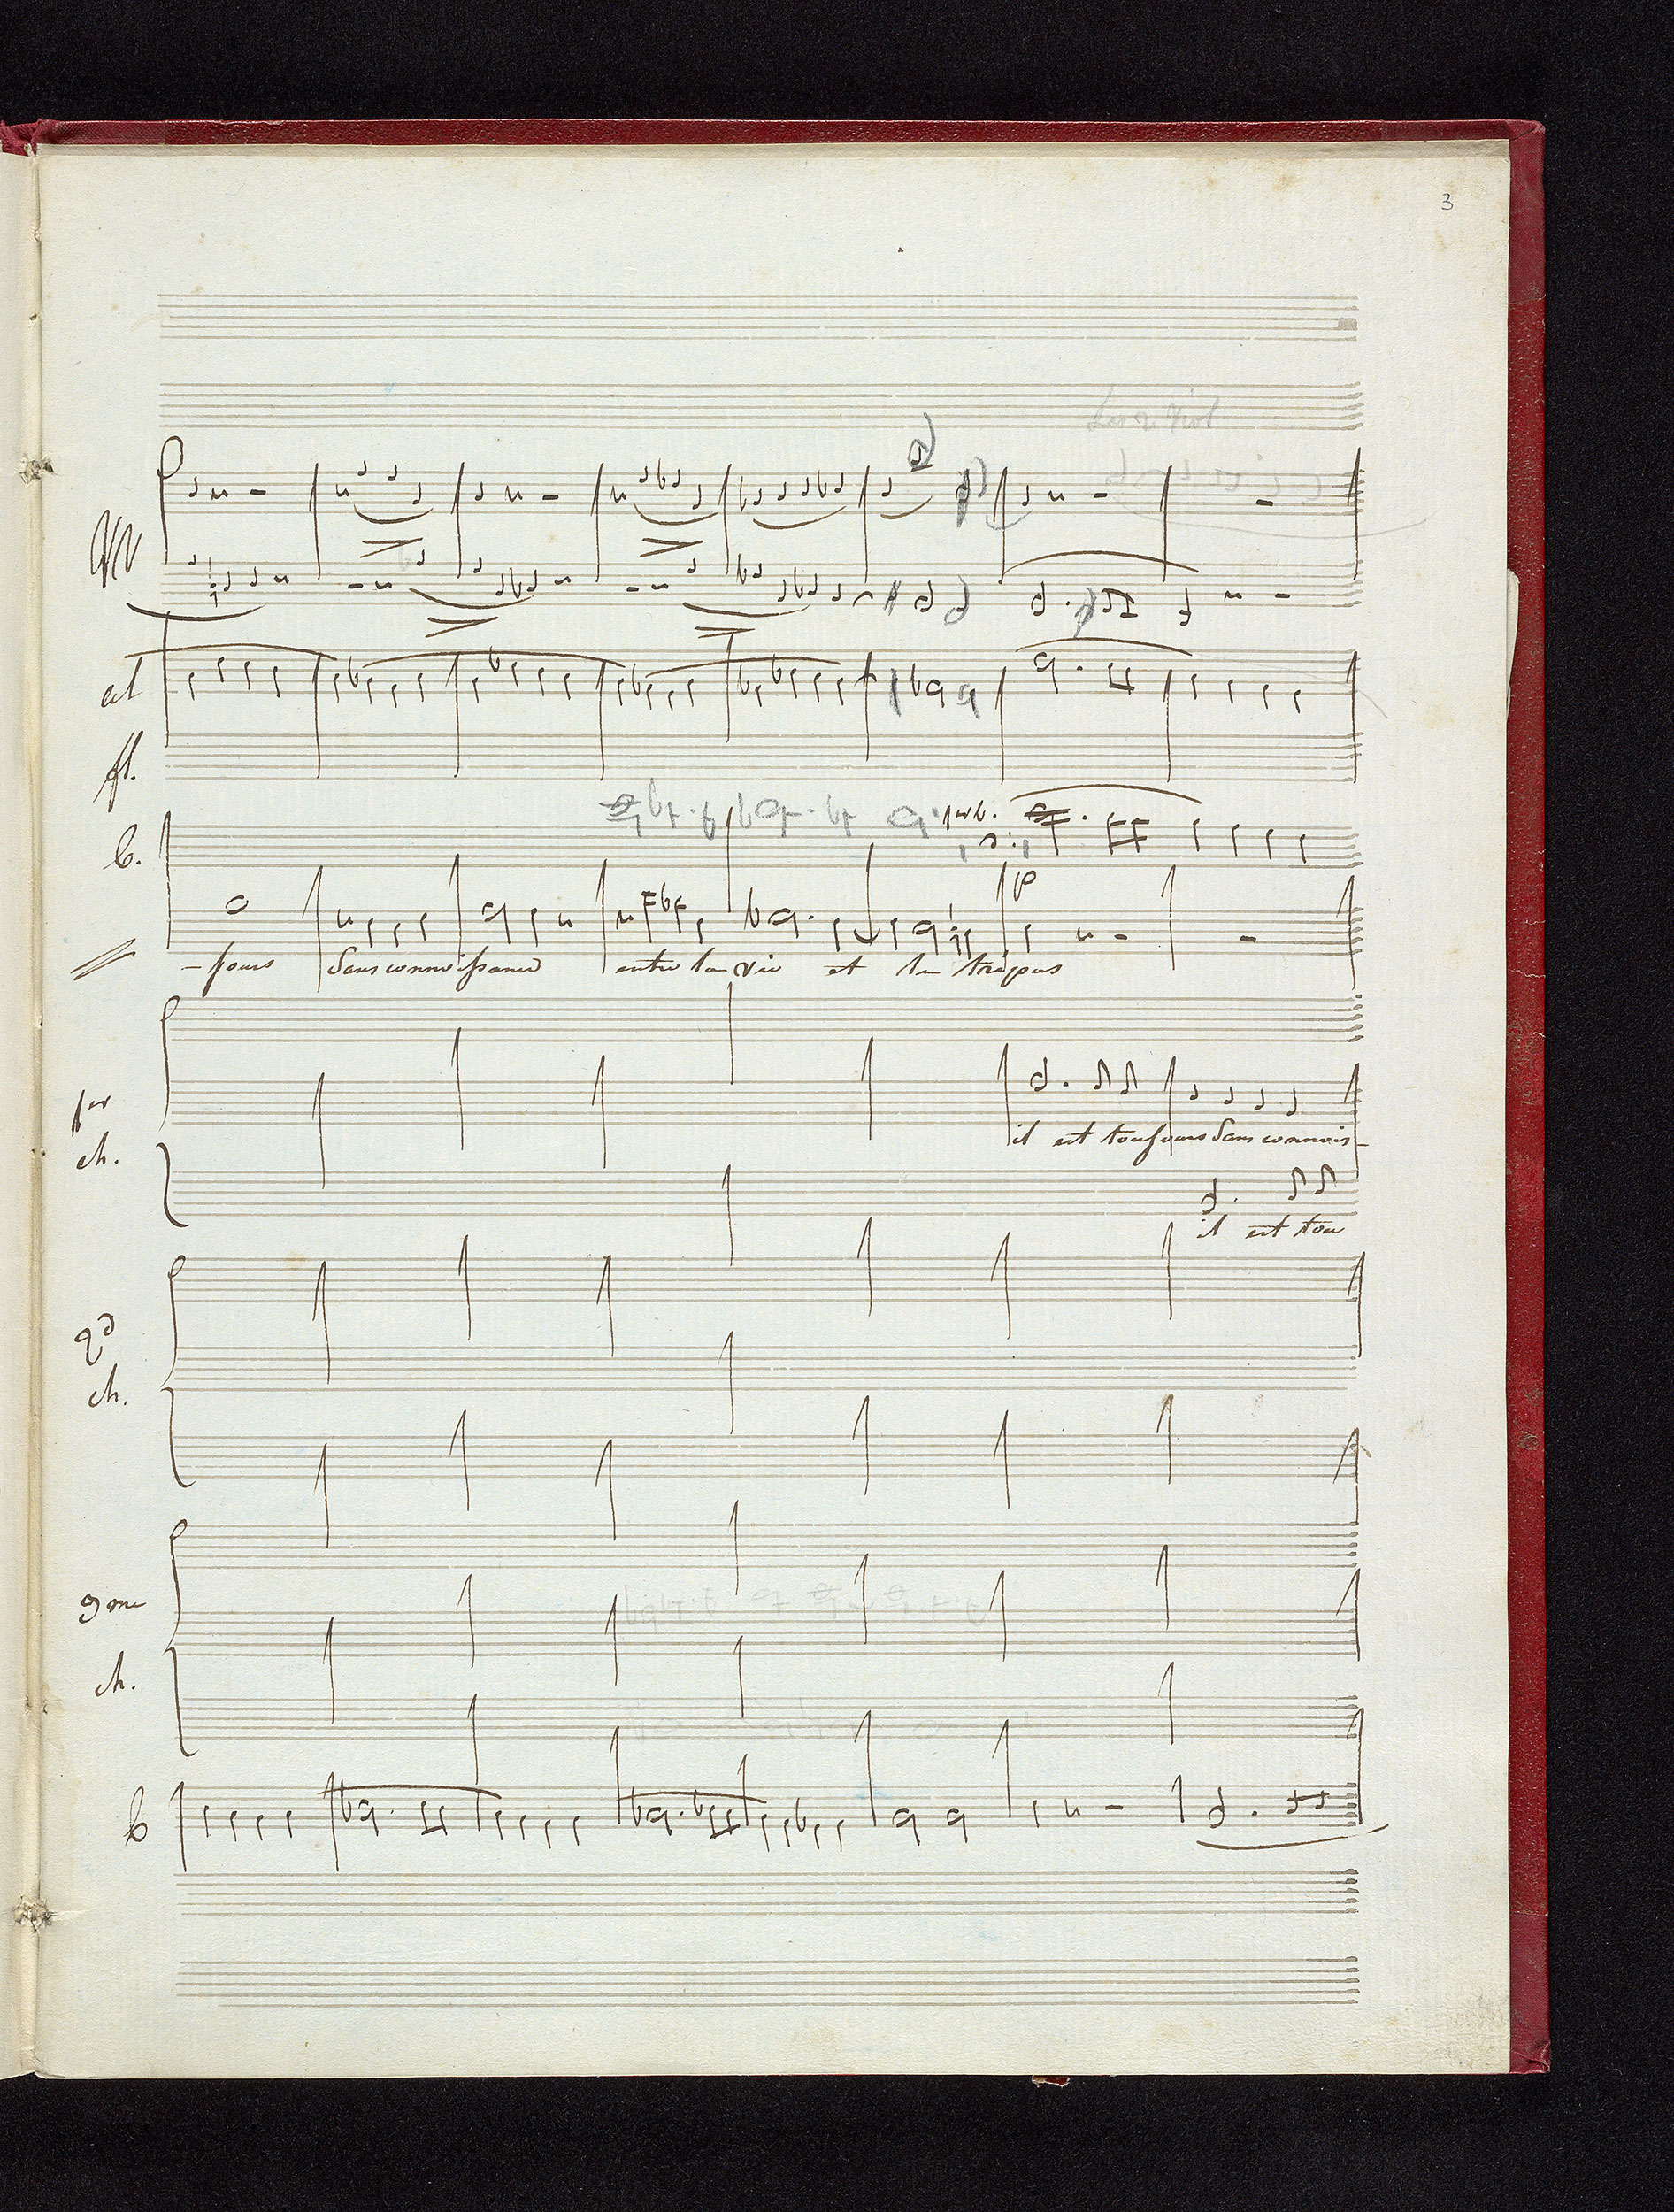 3
VV
alt
fl.
b.
1er b.
p
-jours sans connoissance entre la vie et le trépas
1er
ch.
il est toujours sans connois-
il est tou
2d
ch.
3me
ch.
b